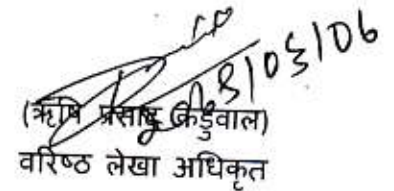 8/05/06
(ऋषि प्रसाद कंडुवाल)
वरिष्ठ लेखा अधिकृत